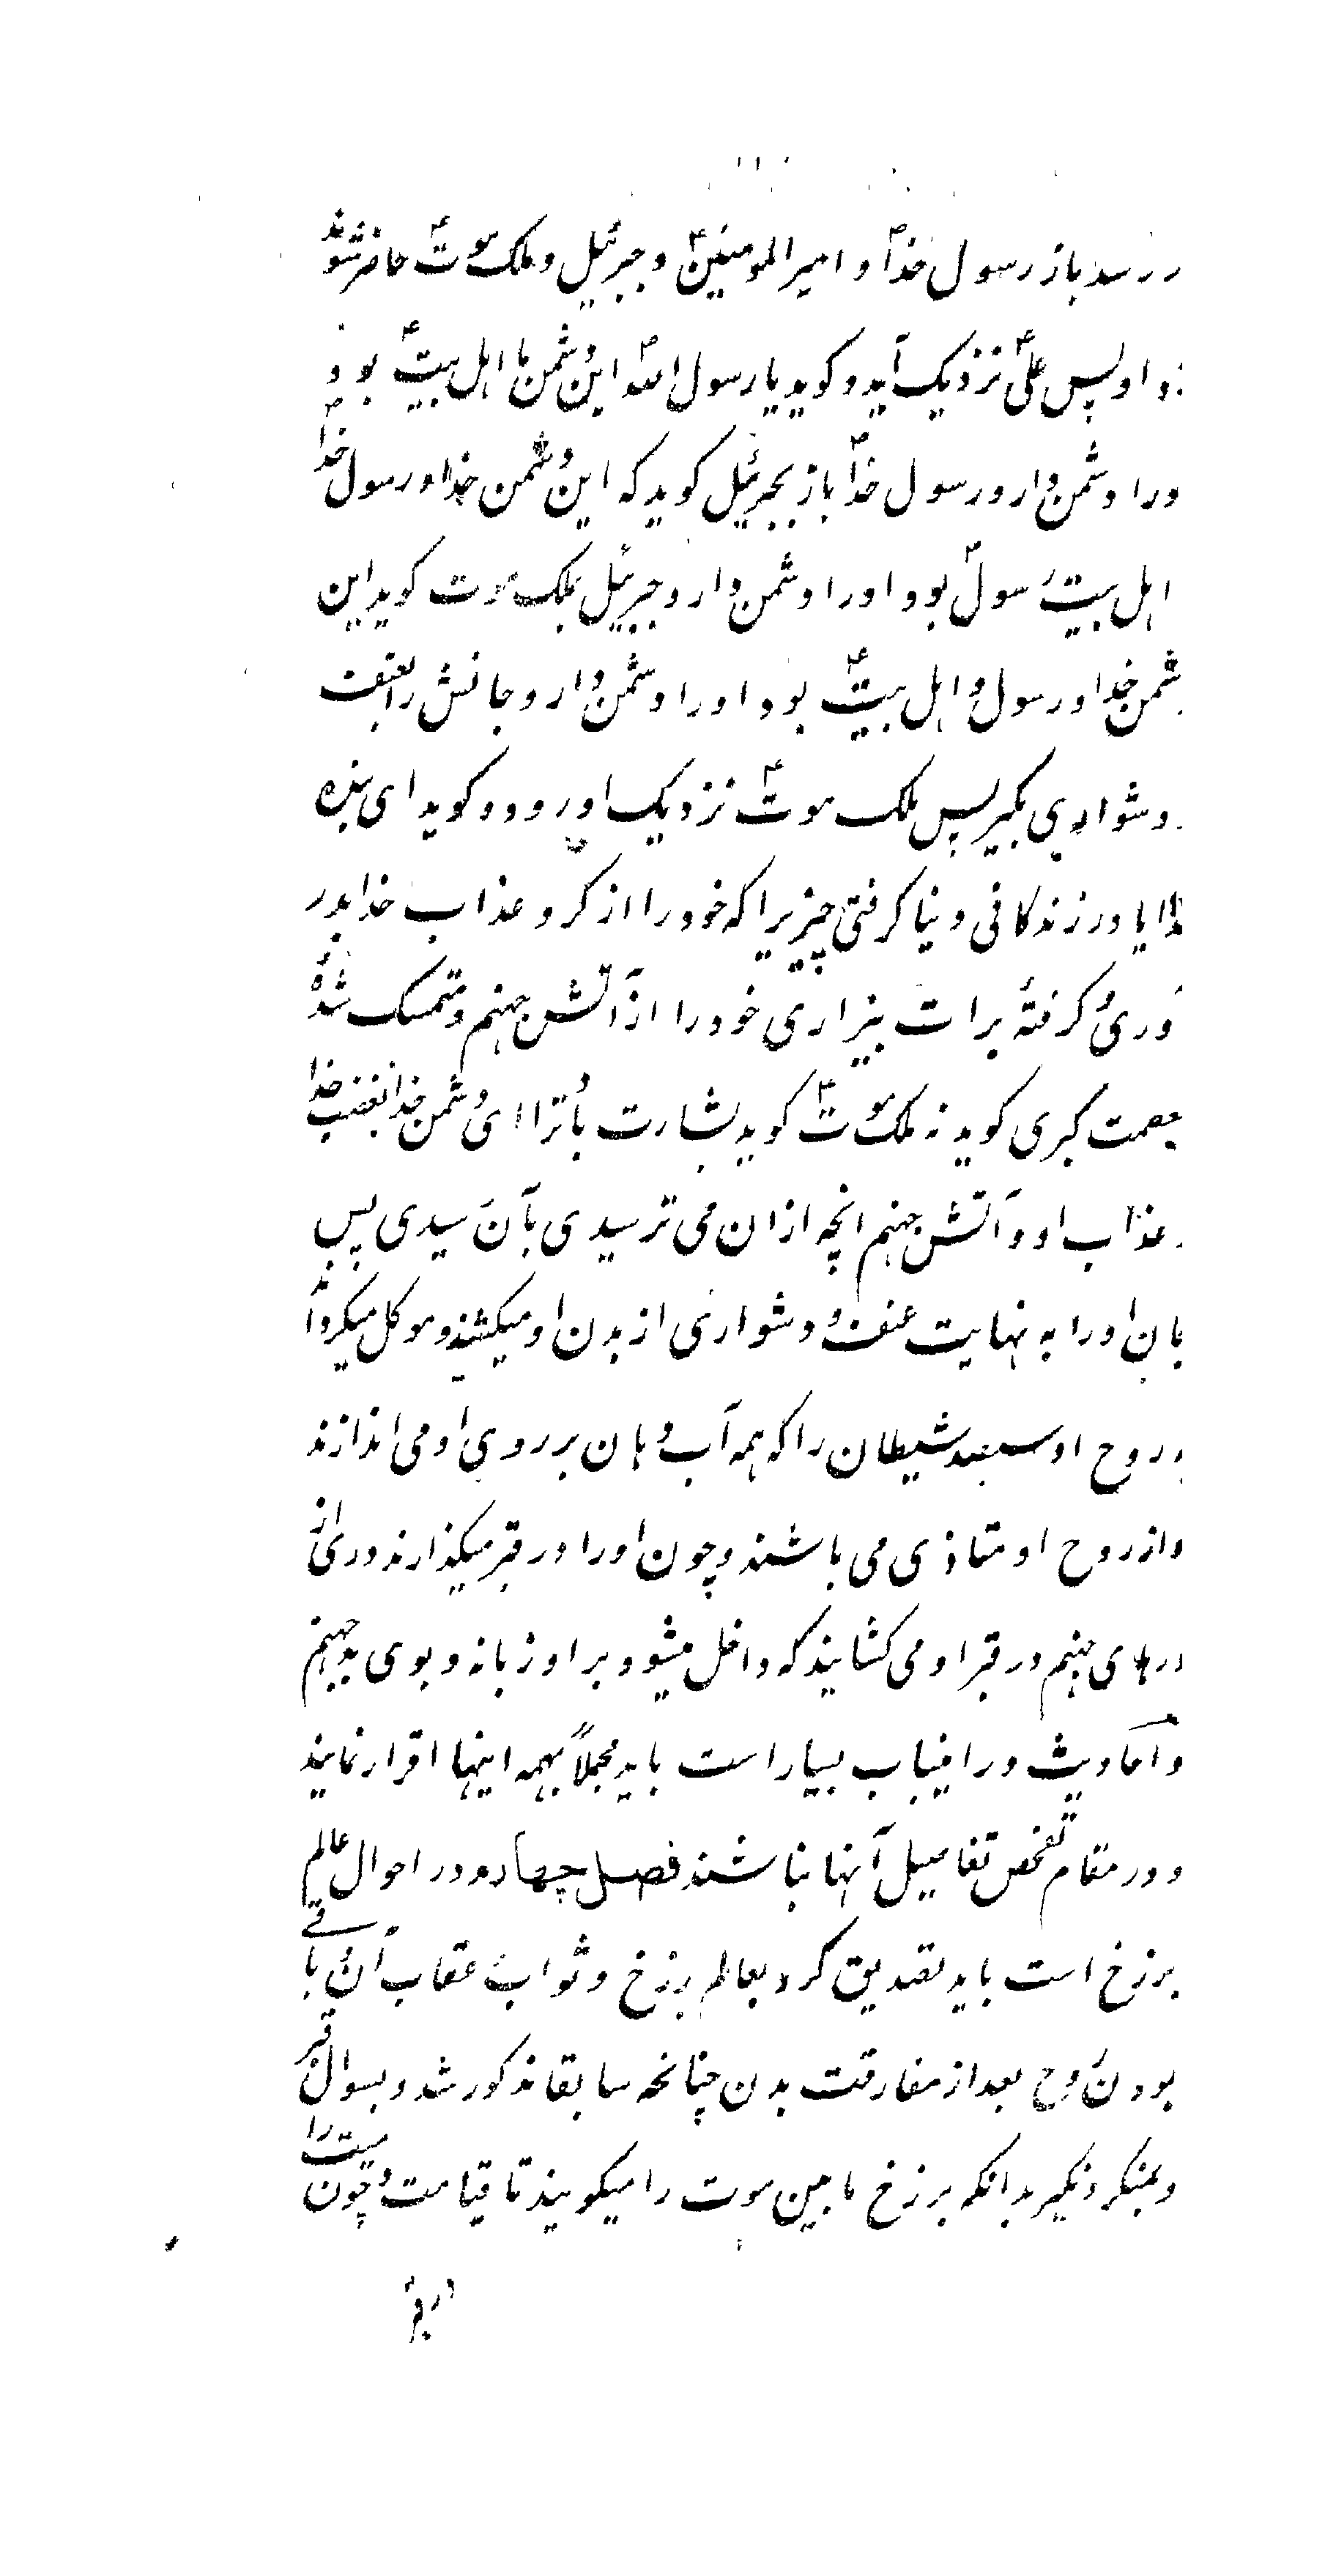 در رسد باز رسول خداؐ و امیر المومنینؑ و جبرئیل و ملک موتؑ حاضر شوند
نزد او پس علیؑ نزدیک آید و کوید یا رسول اللهؐ این دشمن ما اهل بیتؑ بود
ورا دشمن دار و رسول خداؐ باز بجبرئیل کوید که این دشمن خدا و رسول خداؐ
اهل بیت رسولؐ بود اورا دشمن دار و جبرئیل بملک موت کوید این
شمن خدا و رسول و اهل بیتؑ بود اورا دشمن دار و جانش را بعنف
و دشواری بکیر پس ملک موتؑ نزدیک او رود و کوید ای بنده
خدا ایا در زندکانی دنیا کرفتی چیزیرا که خود را از کرو عذاب خدا بدر
آوری و کرفتهٔ برات بیزاری خود را از آتش جهنم و متمسک شدهٔ
بعصمت کبری کوید نه ملک موتؑ کوید بشارت باد ترا ای دشمن خدا بغضب خدا
و عذاب او و آتش جهنم انچه ازان می ترسیدی بآن رسیدی پس
جان اورا به نهایت عنف و دشواری از بدن او میکشند و موکل میکرداند
بر روح او سیصد شیطان را که همه آب دهان بر روی او می اندازند
و از روح او متاذی می باشند و چون اورا در قبر میکذارند دری از
درهای جهنم در قبر او می کشایند که داخل میشود بر او زبانه و بوی بد جهنم
و آحادیث در اینباب بسیار است باید مجملاً بهمه اینها اقرار نمایند
و در مقام تفحص تفاصیل آنها نباشند فصل چهاردم در احوال عالم
برزخ است باید تصدیق کرد بعالم برزخ و ثواب و عقاب آن و باقے
بودن روح بعد از مفارقت بدن چنانچه سابقا مذکور شد و بسوال قبر
و بمنکر و نکیر بدانکه برزخ مابین موت را میکویند تا قیامت و چون میت را
در قبر